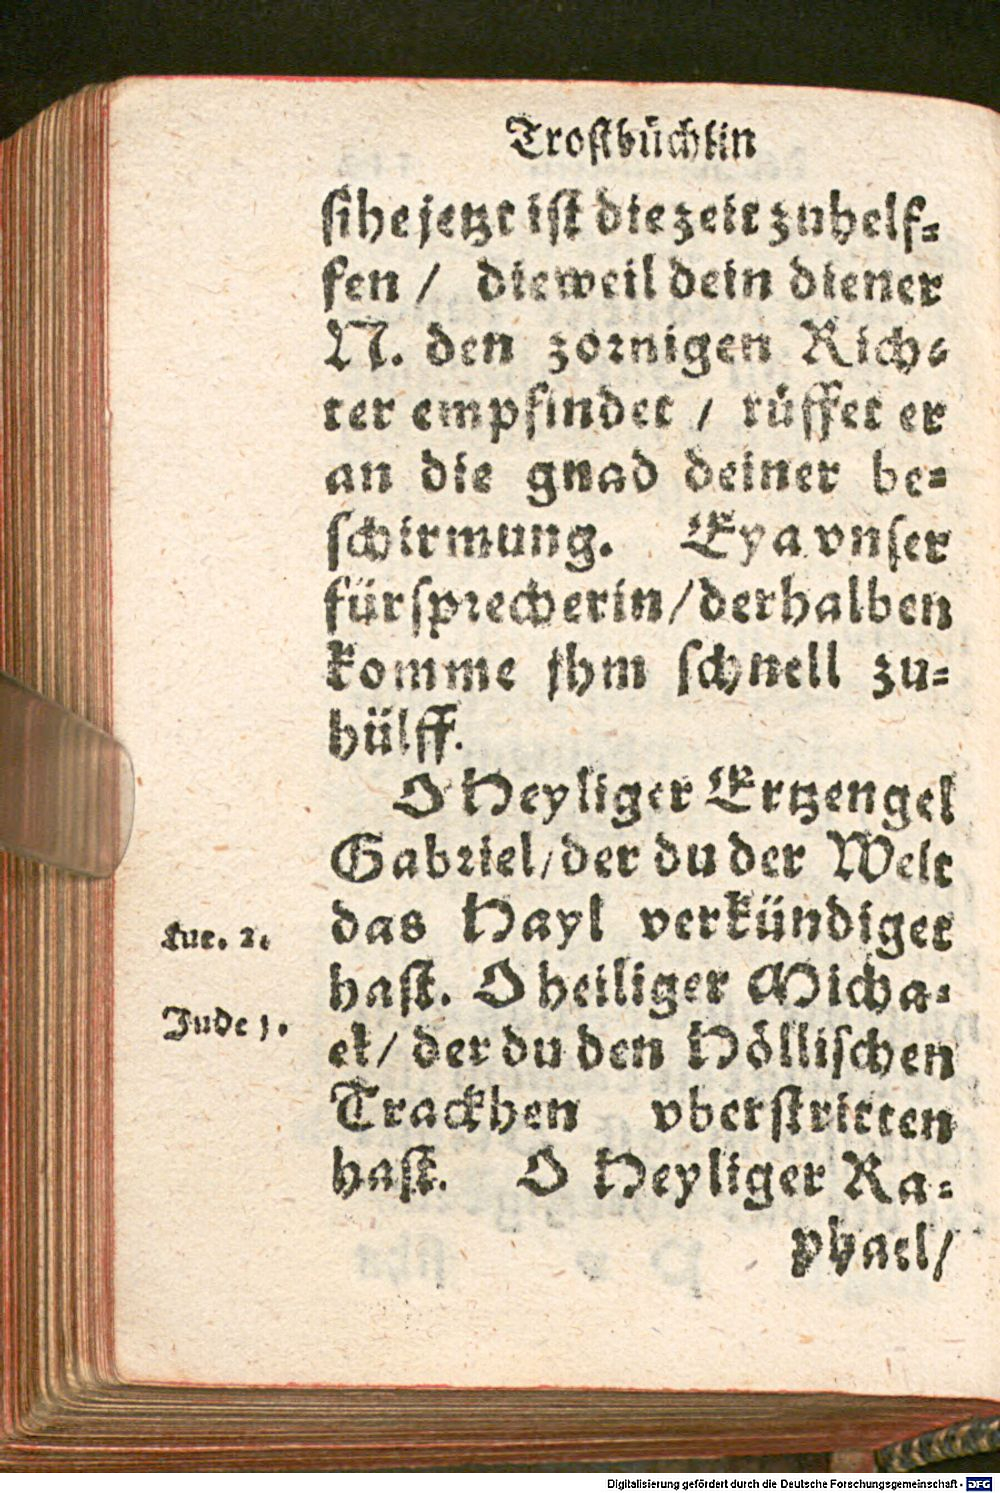 Trostbüchlin
sihe jetzt ist die zeit zuhelf-
fen / dieweil dein diener
N. den zornigen Rich-
ter empfindet / rüffet er
an die gnad deiner be-
schirmung. Eya vnser
fürsprecherin / derhalben
komme jhm schnell zu-
hülff.
O Heyliger Ertzengel
Gabriel / der du der Welt
das Hayl verkündiget
Luc. 2.
hast. O heiliger Micha-
Jude 1.
el / der du den Höllischen
Trackhen vberstritten
hast. O Heyliger Ra-
phael /
Digitalisierung gefördert durch die Deutsche Forschungsgemeinschaft - DFG